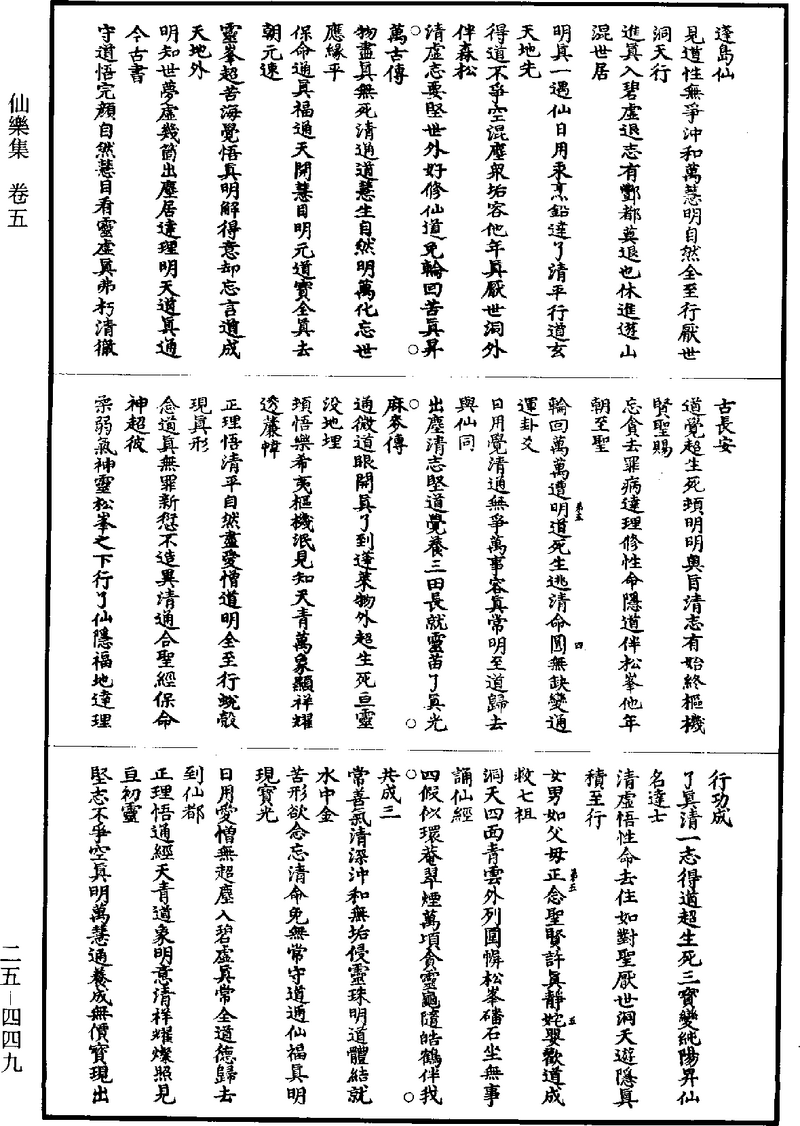 仙樂集　卷五
二五—四四九
蓬島仙
見道性無爭沖和萬慧明自然全至行厭世
洞天行
進真入碧虛退志有酆都莫退也休進遊山
混世居
明真一遇仙日用乘烹鉛達了清平行道玄
天地先
得道不爭空混塵衆垢容他年真厭世洞外
伴森松
清虛志要堅世外好修仙道免輪回苦真昇
萬古傳
物盡真無死清通道慧生自然明萬化忘世
應緣平
保命通真福通天開慧目明元道寶全真去
朝元速
靈峯超苦海覺悟真明解得意却忘言道成
天地外
明知世夢虛幾箇出塵居達理明天道真通
今古書
守道悟完顏自然慧目看靈虛真弗朽清徹
古長安
道覺超生死頭明明輿旨清志有始終樞機
賢聖賜
忘貪去罪病達理修性命隱道伴松峯他年
朝至聖
輪回萬萬遭明道死生逃清命圓無缺變通
第五
四
運卦爻
日用覺清通無爭萬事容真常明至道歸去
與仙同
出塵清志堅道覺養三田長就靈苗了真光
麻麥傳
通微道眼開真了到蓬萊物外超生死亘靈
没地埋
頊悟樂希夷樞機泯見知天青萬象顯祥耀
透簾幃
正理悟清平自然盡愛憎道明全至行蛻殼
現真形
念道真無罪新愆不造異清通合聖經保命
神超彼
柔弱氣神靈松峯之下行了仙隱福地達理
行功成
了真清一志得道超生死三寶變純陽昇仙
名達士
清虛悟性命去住如對聖厭世洞天遊隱真
積至行
女男如父母正念聖賢許真靜姹嬰歡道成
第五
五
救七祖
洞天四面青雲外列圍幈松峯磻石坐無事
誦仙經
四假似環菴翠煙萬頃貪靈龜隨皓鶴伴我
共成三
常善氣清深沖和無垢侵靈珠明道體結就
水中金
苦形欲念忘清命免無常守道通仙福真明
現寶光
日用愛憎無超塵入碧虛真常全道德歸去
到仙都
正理悟通經天青道象明意清祥耀燦照見
亘初靈
堅志不爭空真明萬慧通養成無價寶現出